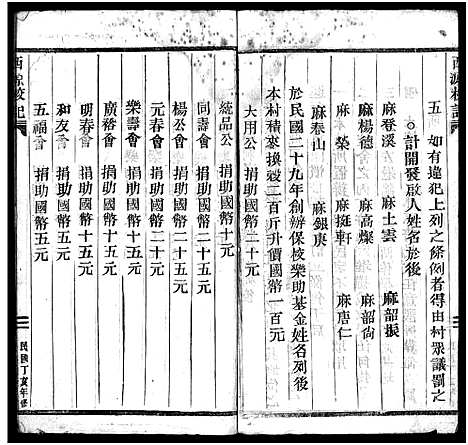 西源校記
五 如有違犯上列之條例者得由村眾議罰之
○計開發啟人姓名於後
麻卷溪 麻土雲 麻韶振
麻楊德 麻高燦 麻韶尚
麻榮 麻挺軒 麻唐仁
麻泰山 麻銀庚
於民國二十九年創辦保校樂助基金姓名列後
本村積穀換穀二百斤升價國幣一百元
大用公 捐助國幣二十元
統品公 捐助國幣十元
同壽會 捐助國幣二十五元
楊公會 捐助國幣二十五元
元春會 捐助國幣二十五元
樂壽會 捐助國幣十五元
廣裕會 捐助國幣十五元
明春會 捐助國幣十五元
和友會 捐助國幣五元
五福會 捐助國幣五元
西源校記
民國丁亥年修